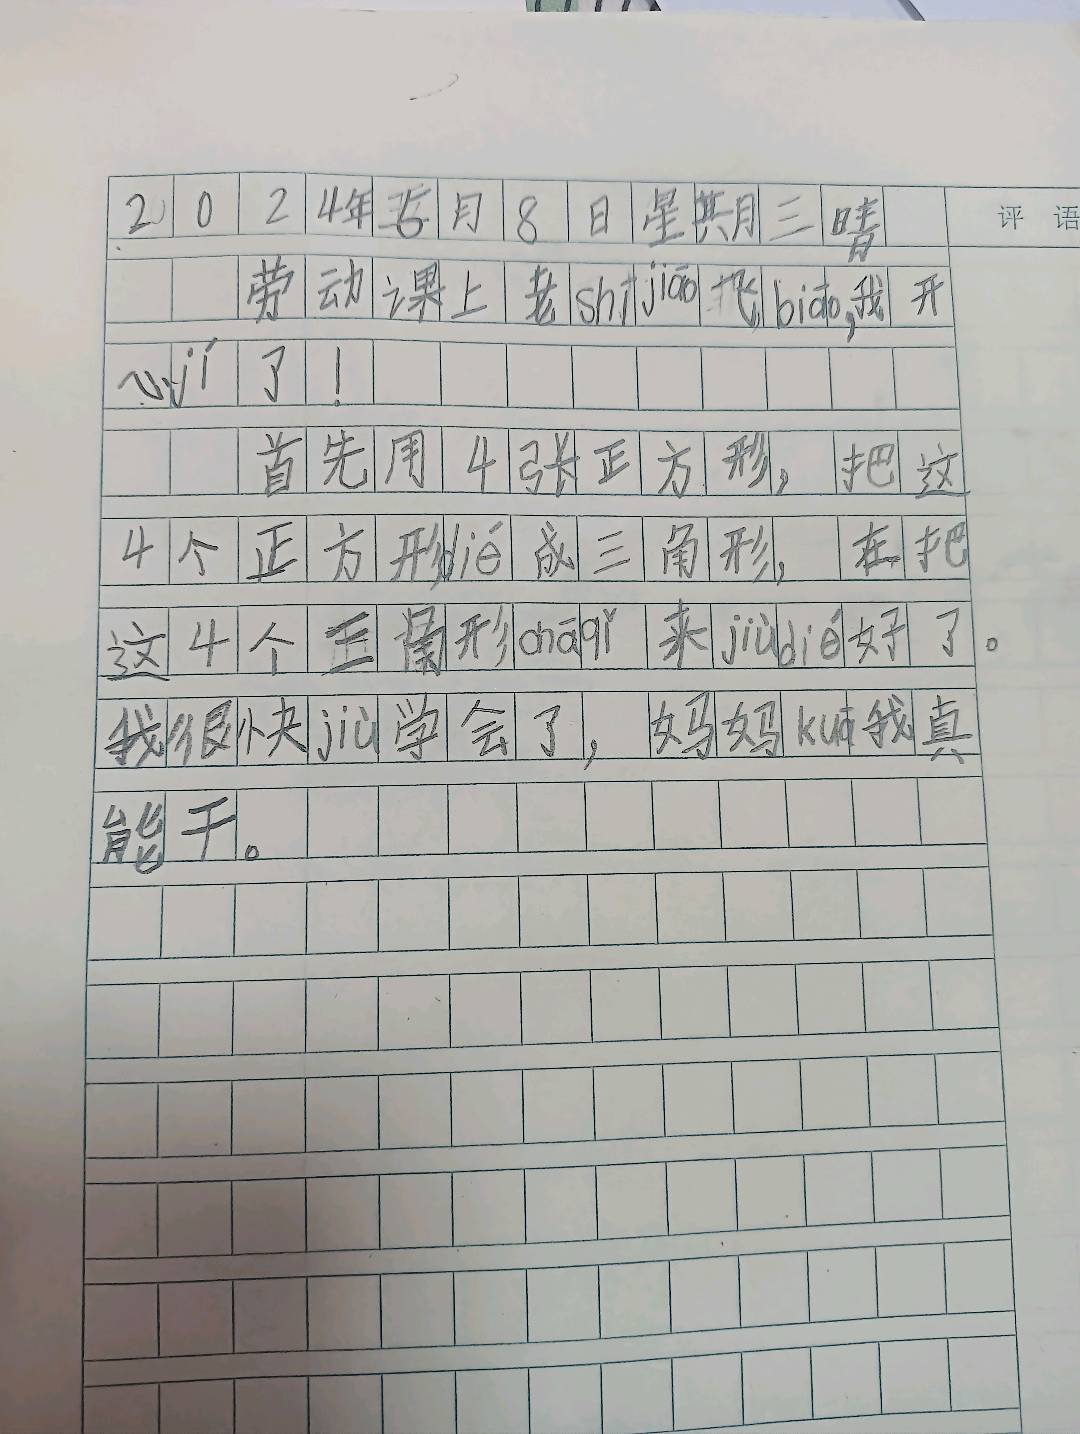 2024年5月8日星期三晴
评语
劳动课上老shījiāo飞biāo,我开
心jí了!
首先用4张正方形,把这
4个正方形dié成三角形,在把
这4个三角形chāqǐ来jiùdié好了。
我很快jiù学会了,妈妈kuā我真
能干。